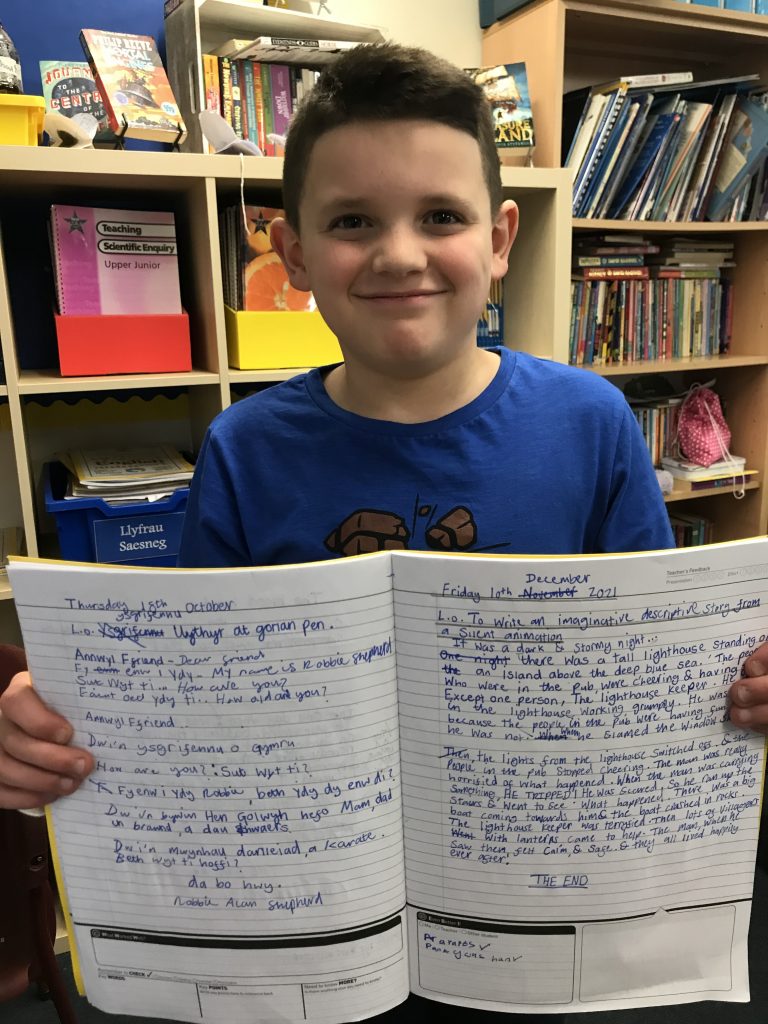 JOURNEY
TO THE
CENTRE
OF THE
PHILIP REEVE
MORTAL
ENGINES
Teaching
Scientific Enquiry
Upper Junior
Llyfrau
Saesneg
Thursday 18th October
ysgrifennu
L.o. Llythyr at gorian pen.
Annwyl Ffriend - Dear friend
Fy enw i ydy... My name is Robbie Shepherd
Sut Wyt ti... How are you?
Faint oed ydy ti... How old are you?
Annwyl Ffriend...
Dwi'n ysgrifennu o Gymru
How are you? Sut Wyt ti?
Fy enw i ydy Robbie, beth ydy dy enw di?
Dwi'n byw'n Hen Golwyn hefo Mam, dad
un brawd, a dau
Dwi'n mwynhau darllen, a Karate.
Beth wyt ti hoffi?
da bo hwy.
Robbie Alan Shepherd
What Worked Well?
Remember to CHECK ✓
Key WORDS
Key POINTS
Need to know MORE?
Teacher's Feedback
Presentation
Effort
December
Friday 10th November 2021
L.o. To write an imaginative descriptive story from
a silent animation
It was a dark & stormy night...
One night there was a tall lighthouse standing on
the an island above the deep blue sea. The people
Who were in the pub, were cheering & having
Except one person, The lighthouse keeper. He
in the lighthouse, working grumpily. He was
because the people in the pub were having fun
he was not. When he slamed the window
Then, the lights from the lighthouse switched off, & the
People in the pub stopped cheering. The man was really
horrified of what happened. When the man was carrying
Something, HE TRIPPED! He was scared, So he run up the
Stairs & went to see what happened. There was a big
boat coming towards him & the boat crashed in rocks.
The lighthouse keeper was terrified Then lots of villagers
Went With lanterns came to help. The man, when he
Saw them, felt Calm, & Safe. & they all lived happily
ever after.
THE END
Even Better If
Me
Teacher
Other student
✓
✓